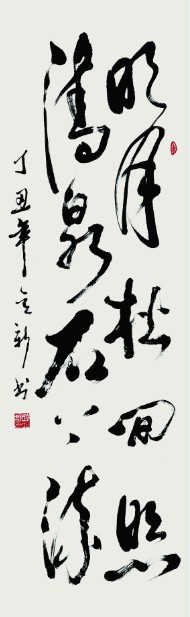 明月松间照
清泉石上流
丁丑年新书